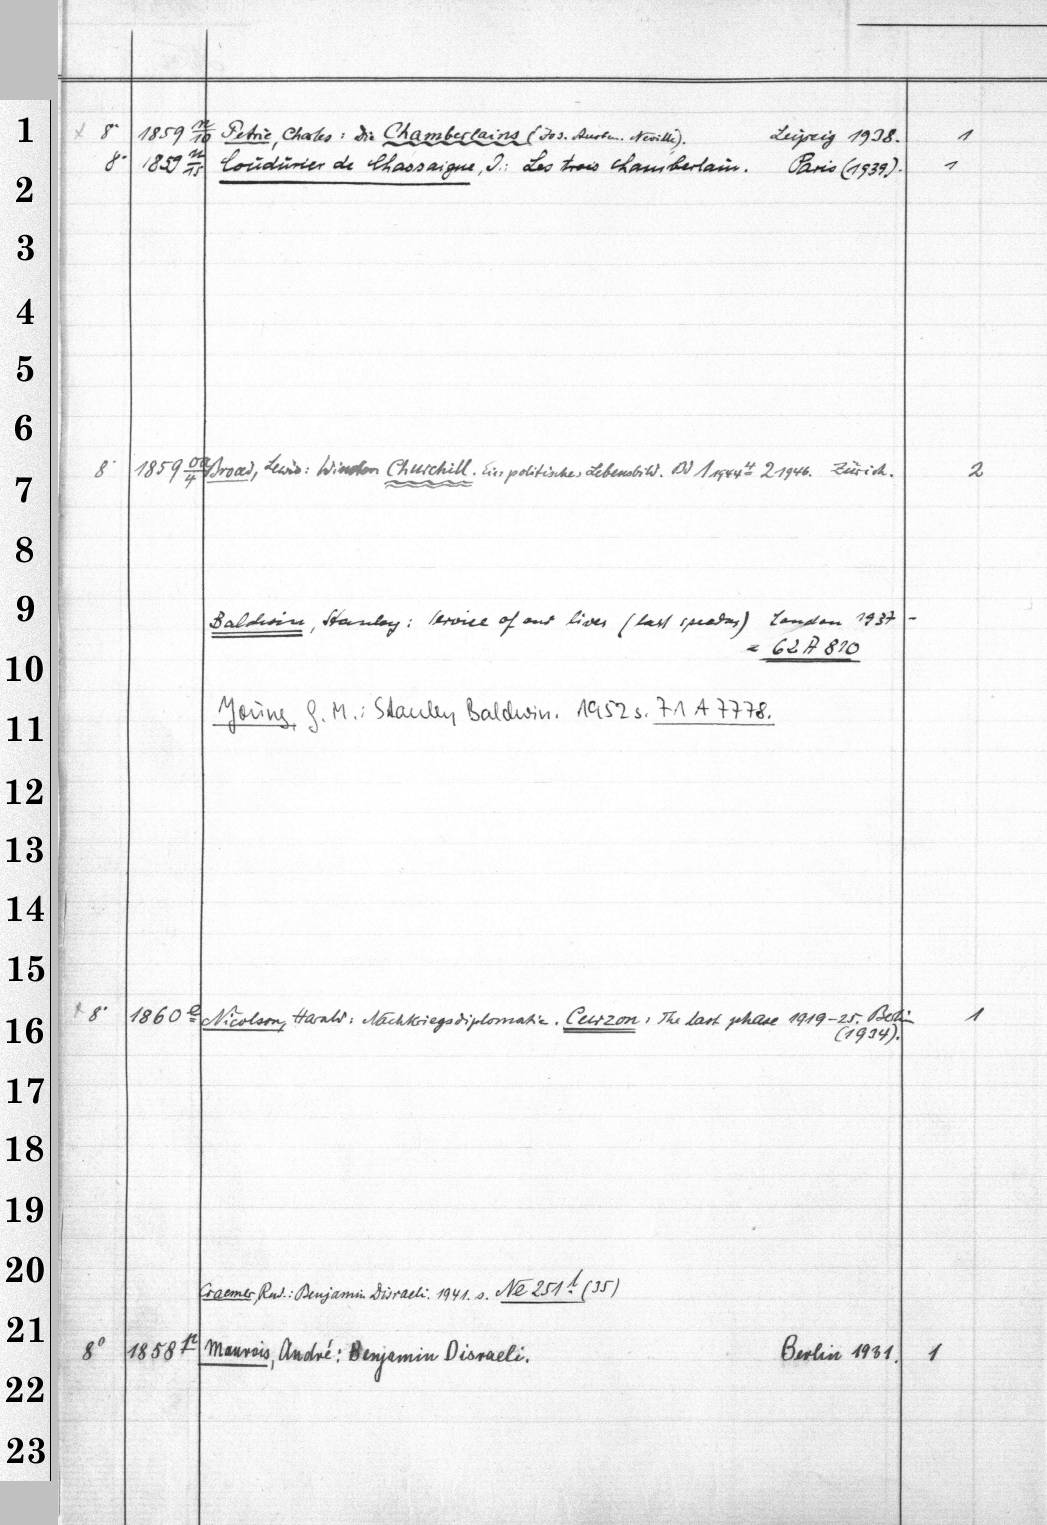 1
× 8° 1859 n/10 Petrie, Charles: Die Chamberlains (Jos. Austen. Neville). Leipzig 1938. 1
8° 1859 n/15 Coudurier de Chassaigne, J.: Les trois Chamberlain. Paris (1939). 1
2
3
4
5
6
8° 1859 oa/4 Broad, Lewis: Winston Churchill. Ein politisches Lebensbild. Bd 1 1944 u 2 1946. Zürich. 2
7
8
9
Baldwin, Stanley: Service of our lives (last speeches) London 1937 -
= 62 A 810
10
Young, G. M.: Stanley Baldwin. 1952 s. 71 A 7778.
11
12
13
14
15
× 8° 1860 e Nicolson, Harald: Nachkriegsdiplomatie. Curzon: The last phase 1919-25. Berlin 1
16
(1934).
17
18
19
20
Craemer, Rud.: Benjamin Disraeli. 1941. s. Ne 251 l (35)
21
8° 1858 Maurois, André: Benjamin Disraeli. Berlin 1931. 1
22
23